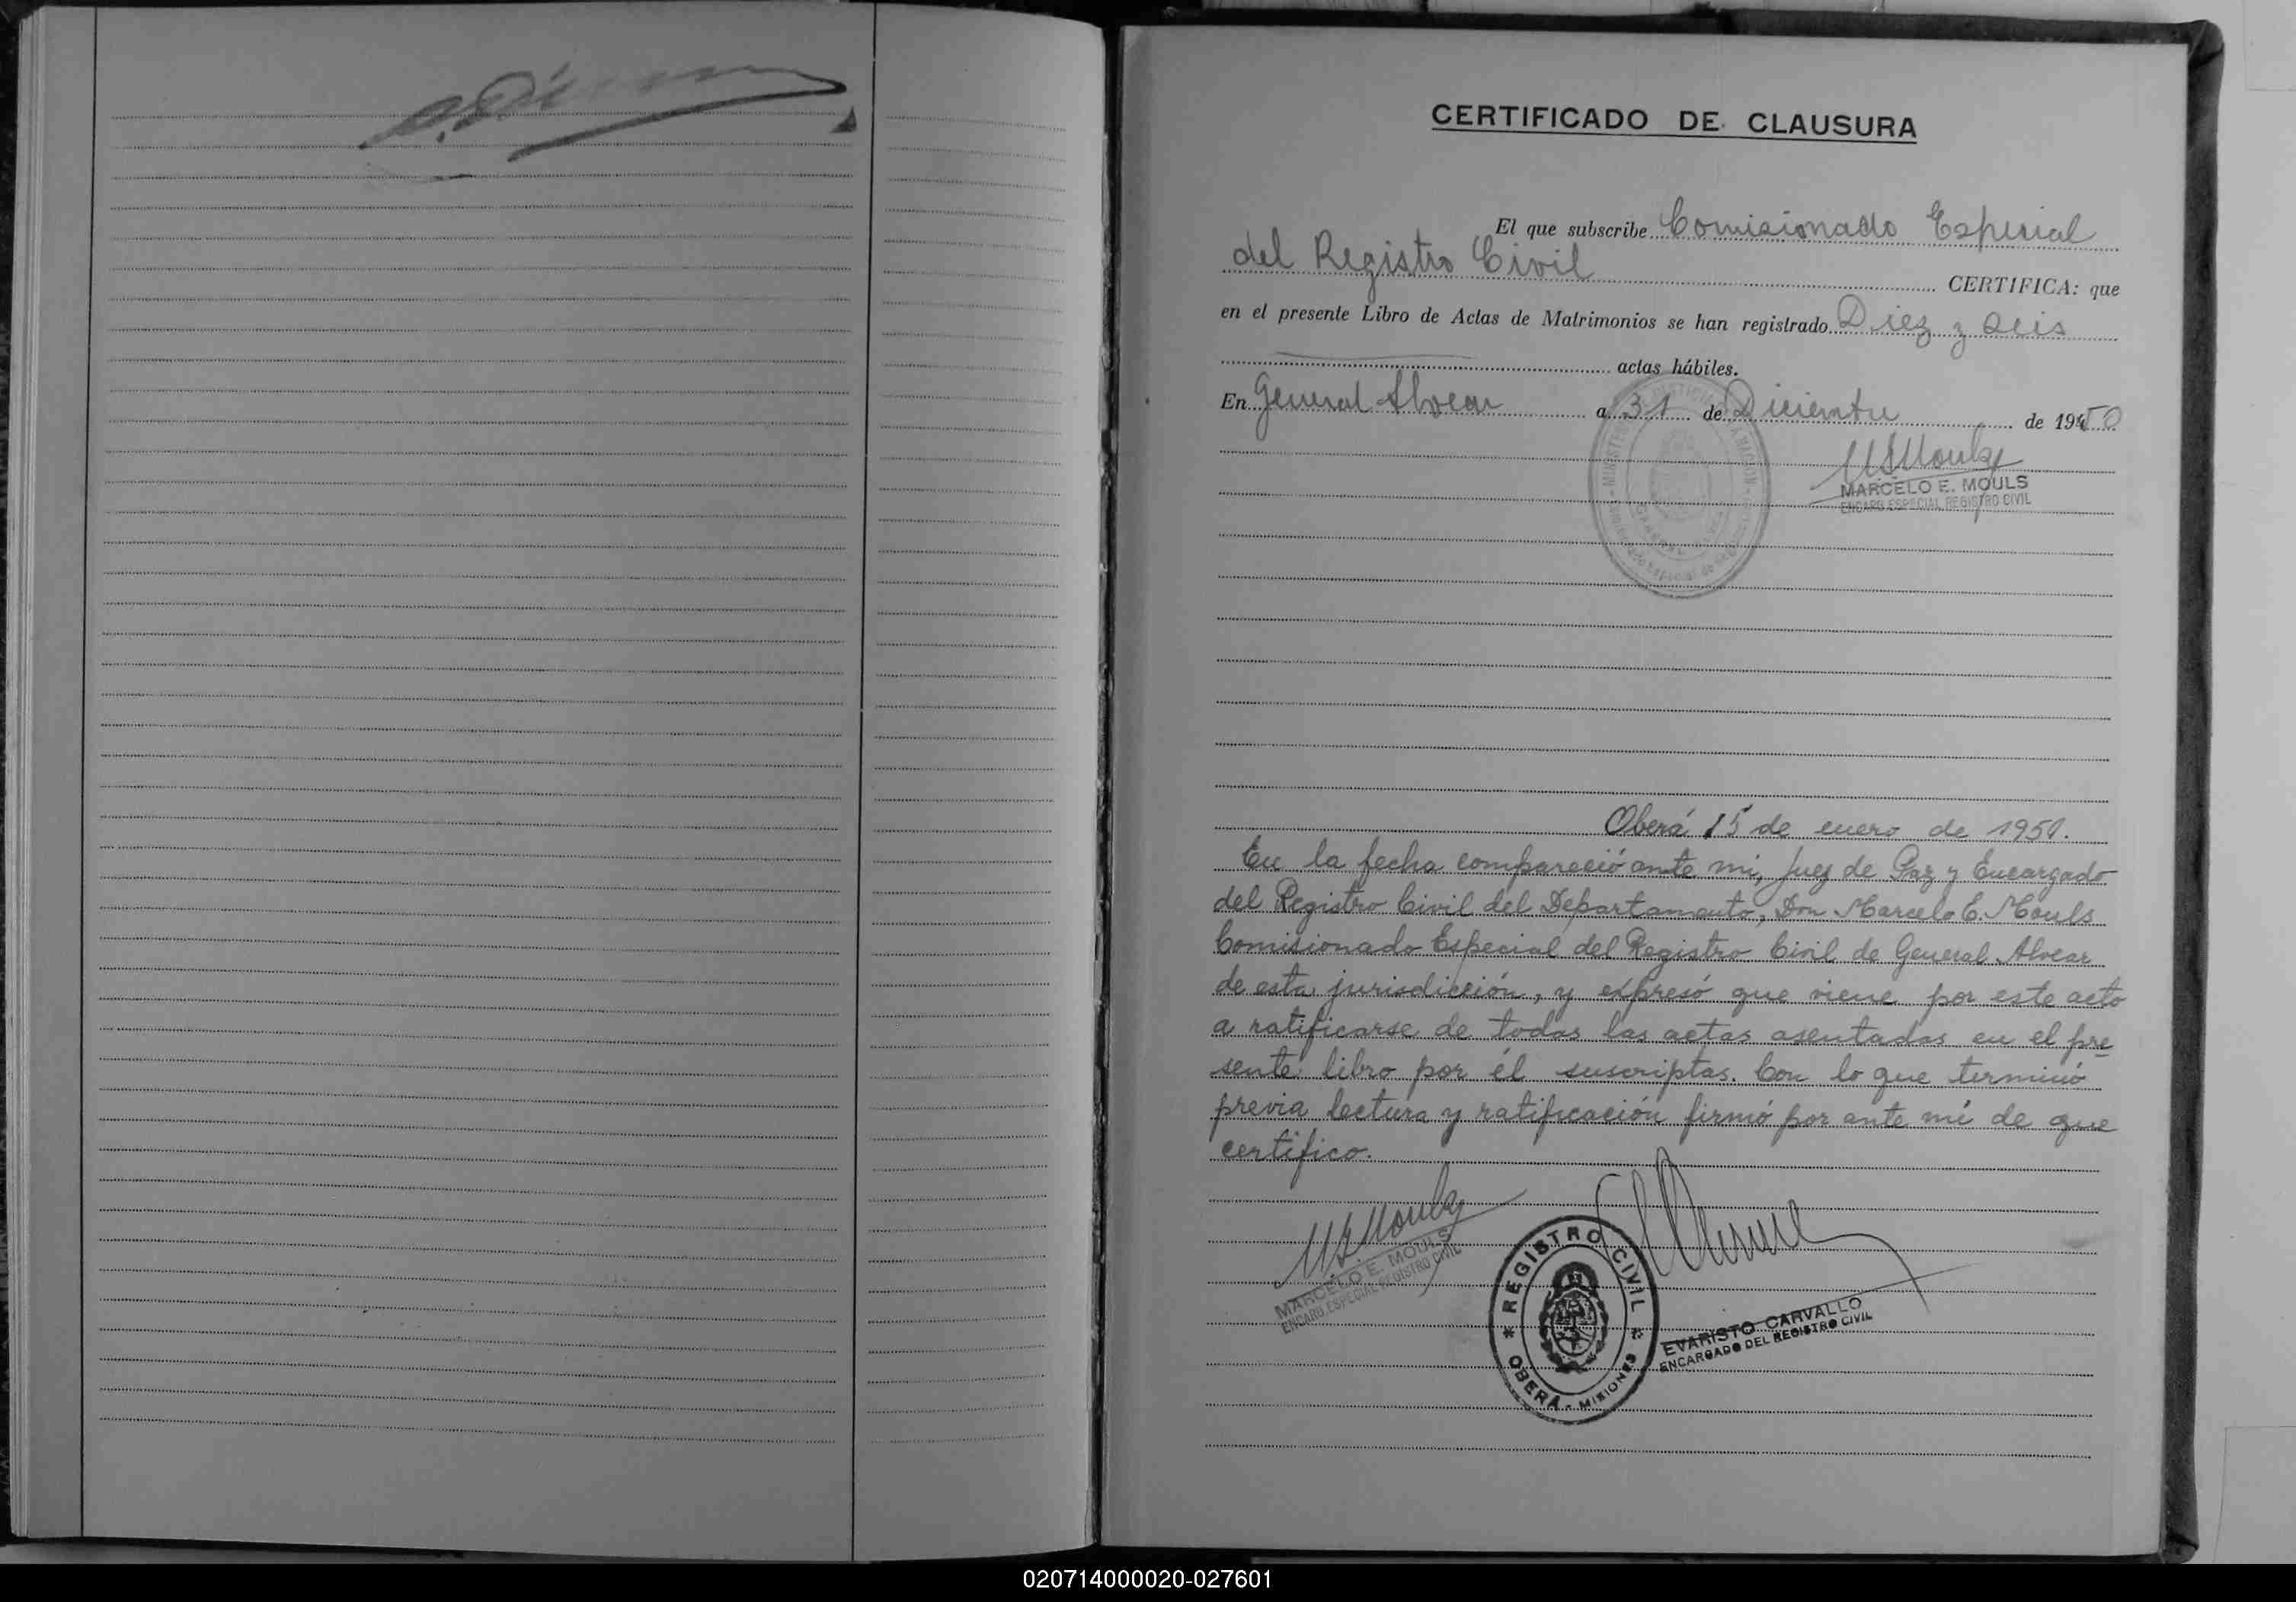 CERTIFICADO DE CLAUSURA
El que subscribe Comisionado Especial
del Registro Civil CERTIFICA: que
en el presente Libro de Actas de Matrimonios se han registrado Diez y seis
actas hábiles.
En General Alvear a 31 de Diciembre de 1950
MARCELO E. MOULS
ENCARG ESPECIAL REGISTRO CIVIL
Oberá 15 de enero de 1951.
En la fecha compareció ante mi, Juez de Paz y Encargado
del Registro Civil del Departamento, Don Marcelo E. Mouls
Comisionado Especial del Registro Civil de General Alvear
de esta jurisdicción, y expresó que viene por este acto
a ratificarse de todas las actas asentadas en el pre
sente libro por él suscriptas. Con lo que terminó
previa lectura y ratificación firmó por ante mí de que
certifico.
MARCELO E. MOULS
ENCARG ESPECIAL REGISTRO CIVIL
REGISTRO CIVIL
OBERÁ - MISIONES
EVARISTO CARVALLO
ENCARGADO DEL REGISTRO CIVIL
020714000020-027601